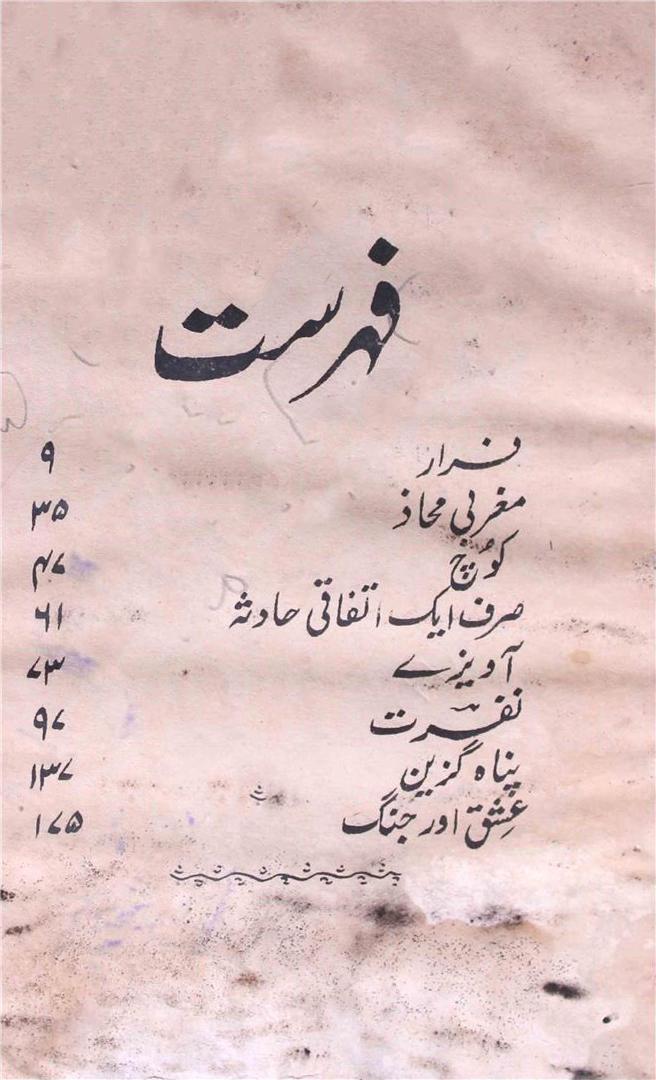 فہرست
فرار ۹
مغربی محاذ ۳۵
کوُچ ۴۷
صرف ایک اتفاقی حادثہ ۶۱
آویزے ۷۳
نفرت ۹۷
پناہ گزین ۱۳۷
عِشق اور جنگ ۱۷۵